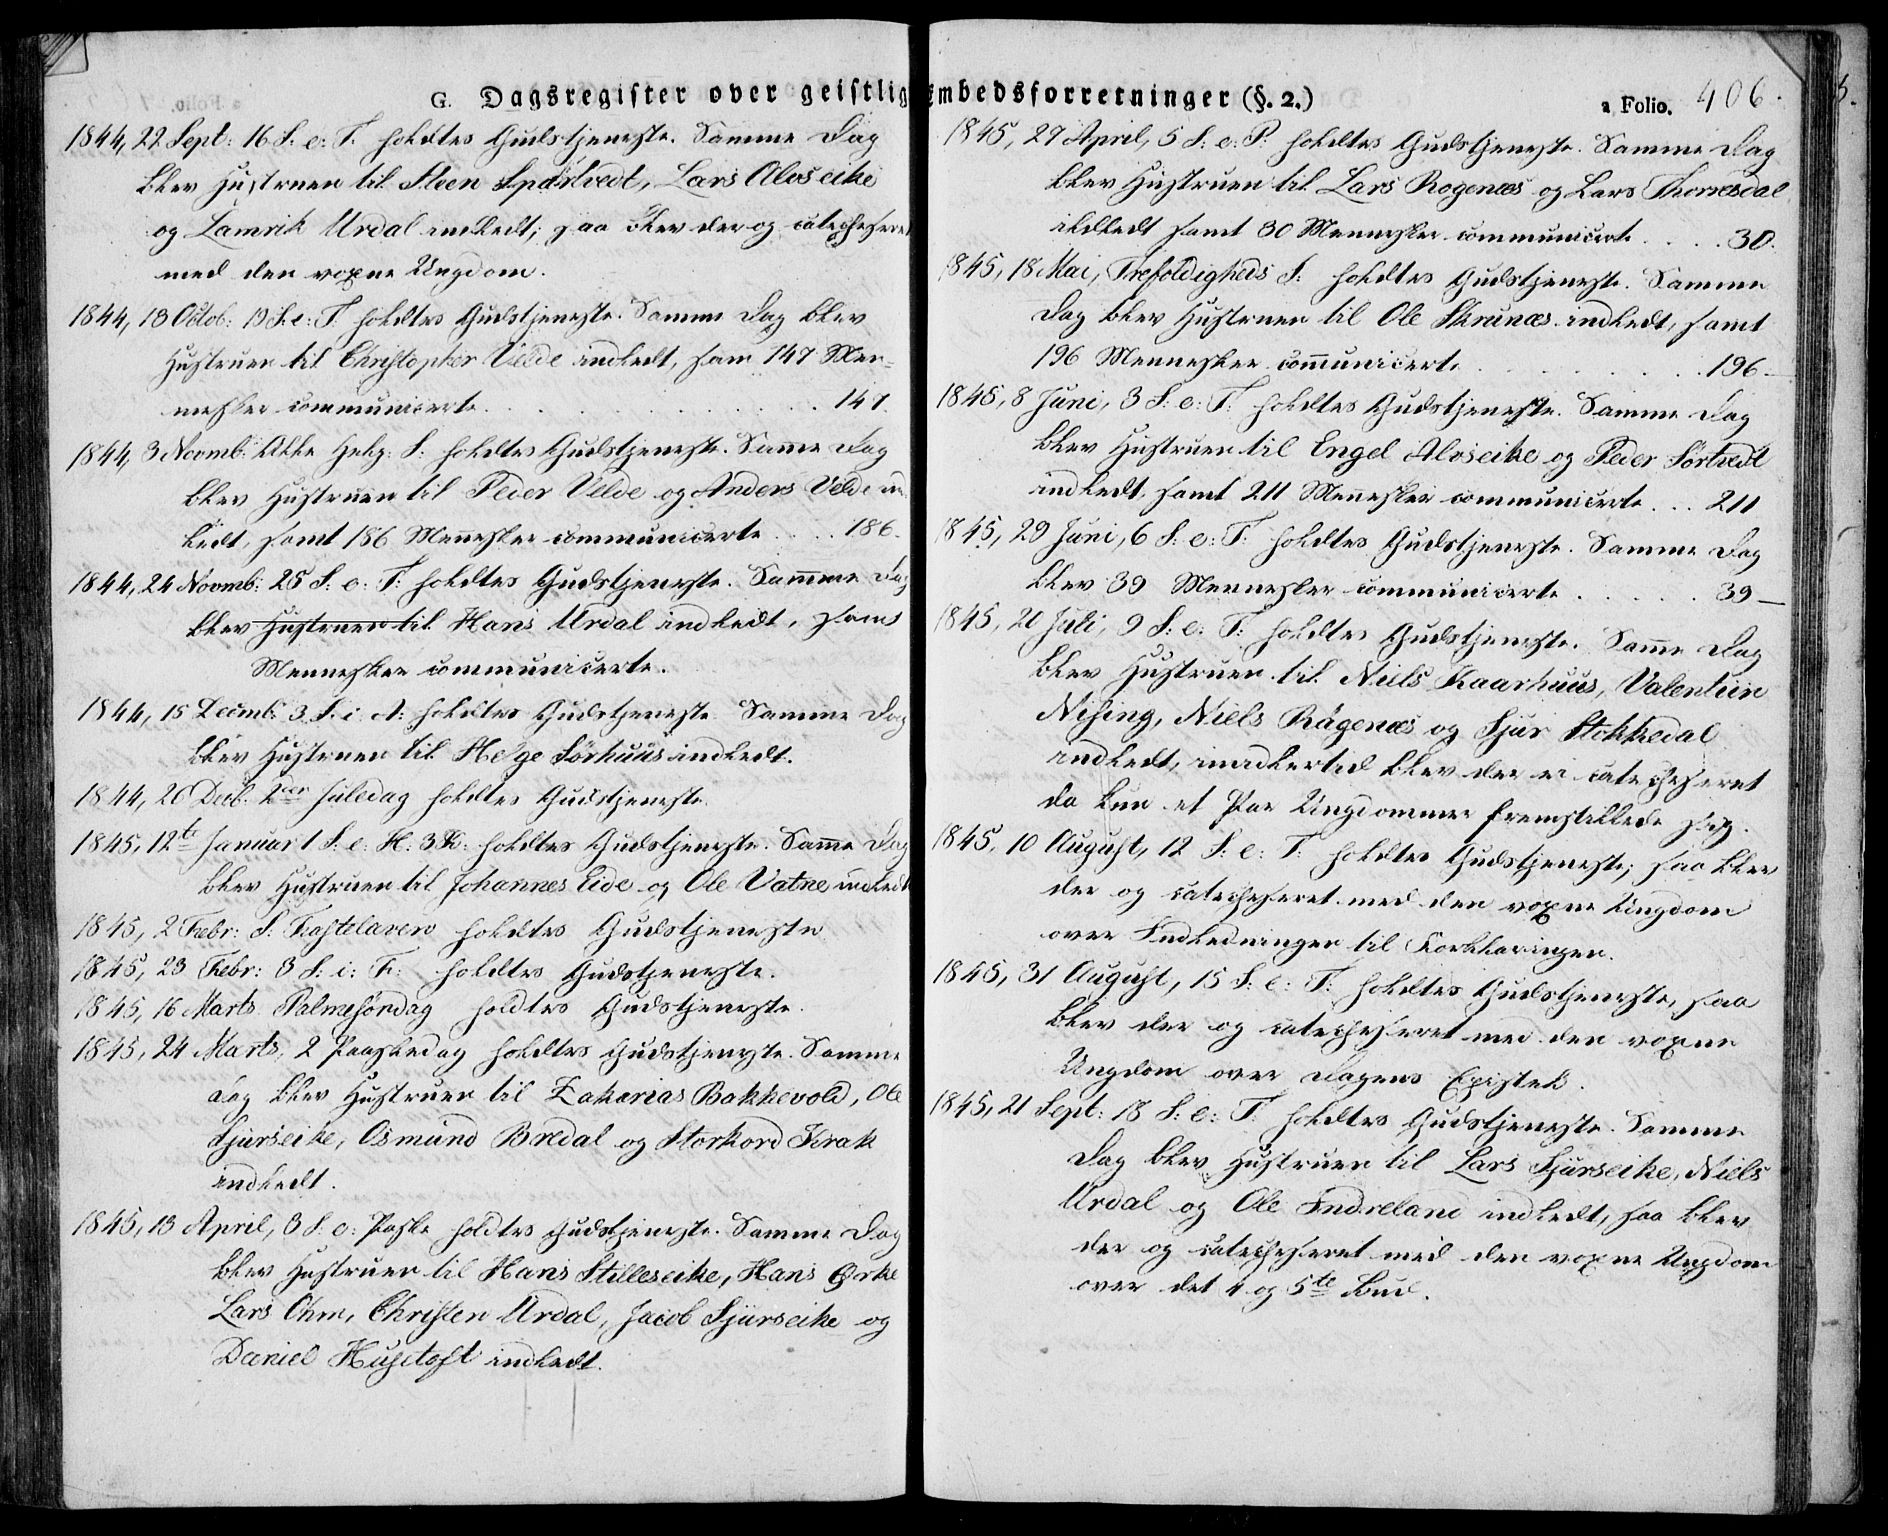 G. Dagsregister over geistlig
1844, 22 Sept: 16 S: e: T. holdtes Gudstjeneste. Samme Dag
blev Hustruen til Steen Spärtvedt, Lars Alvseike
og Lamrik Urdal indledt; saa blev der og catecheseret
med den voxne Ungdom.
1844, 13 Octob: 19 S: e: T: holdtes Gudstjeneste. Samme Dag blev
Hustruen til Christopher Velde indledt, sam 147 Men-
nesker communicerte . . . 147
1844, 3 Novmb. Alle Helg: S: holdtes Gudstjeneste. Same Dag
blev Hustruen til Peder Velde og Anders Velde in
ledt, samt 186 Mennesker communicerte . . . 186.
1844, 24 Novmb: 25 S: e: T: holdtes Gudstjeneste. Samme Dag
blev Hustruen til Hans Urdal indledt, samt
Mennesker communicerte.
1844, 15 Decmb: 3 S. i. A: holdtes Gudstjeneste Samme Dag
blev Hustruen til Helge Sörhuüs indledt.
1844, 26 Decb. 2den Juledag holdtes Gudstjeneste.
1845, 12te Januar 1 S. e. H. 3 K: holdtes Gudstjeneste. Same Dag
blev Hustruen til Johannes Eide og Ole Vatne indledt
1845, 2 Febr: S: Fastelaven holdtes Gudstjeneste
1845, 23 Febr: 3 S: i: F: holdtes Gudstjeneste.
1845, 16 Marts Palmesöndag holdtes Gudstjeneste.
1845, 24 Marts, 2 Paaskedag holdtes Gudstjeneste. Samme
dag blev Hustruen til Zakarias Bakkevold, Ole
Sjurseike, Osmund Bredal og Storkord Krak
indledt.
1845, 13 April, 3 S. e: Paske holdtes Gudstjeneste. Samme Dag
blev Hustruen til Hans Stilleseike, Hans Ørke
Lars Ohm, Christen Urdal, Jacob Sjurseike og
Daniel Husetoft indledt.
Embedsforretninger (§. 2.)
a Folio. 406.
1845, 27 April, 5 S: e: P: holdtes Gudstjeneste. Samme Dag
blev Hustruen til Lars Rogenæs og Lars Thorresdal
indledt samt 30 Mennesker communicerte . . . . 30.
1845, 18 Mai, Trefoldigheds S: holdtes Gudstjeneste. Samme
Dag blev Hustruen til Ole Skrunæs indledt, samt
196 Mennesker communicerte . . . 196.
1845, 8 Juni, 3 S: e: T: holdtes Gudstjeneste. Samme Dag
blev Hustruen til Engel Alvseike og Peder Sörtvedt
indledt, samt 211 Mennesker communicerte . . . 211
1845, 29 Juni, 6 S: e: T: holdtes Gudstjeneste. Samme Dag
blev 39 Mennesker communicerte . . . . . 39
1845, 20 Juli, 9 S: e: T: holdtes Gudstjeneste. Same Dag
blev Hustruen til Niels Kaarhuus, Valentiin
Nising, Niels Rägenæs og Sjur Stokkedal
indledt, imidlertid blev der ei catecheseret
da kun et Par Ungdommer fremstillede sig.
1845, 10 August, 12 S: e: T: holdtes Gudstjeneste; saa blev
der og catecheseret med den voxne Ungdom
over Indledningen til Forklaringen.
1845, 31 August, 15 S: e: T: holdtes Gudstjeneste, saa
blev der og catecheseret med den voxne
Ungdom over Dagens Epistel.
1845, 21 Sept: 18 S: e: T: holdtes Gudstjeneste. Samme
Dag blev Hustruen til Lars Sjurseike, Niels
Urdal og Ole Indreland indledt, saa blev
der og catecheseret med den voxne Ungdom
over det 4 og 5te Bud.